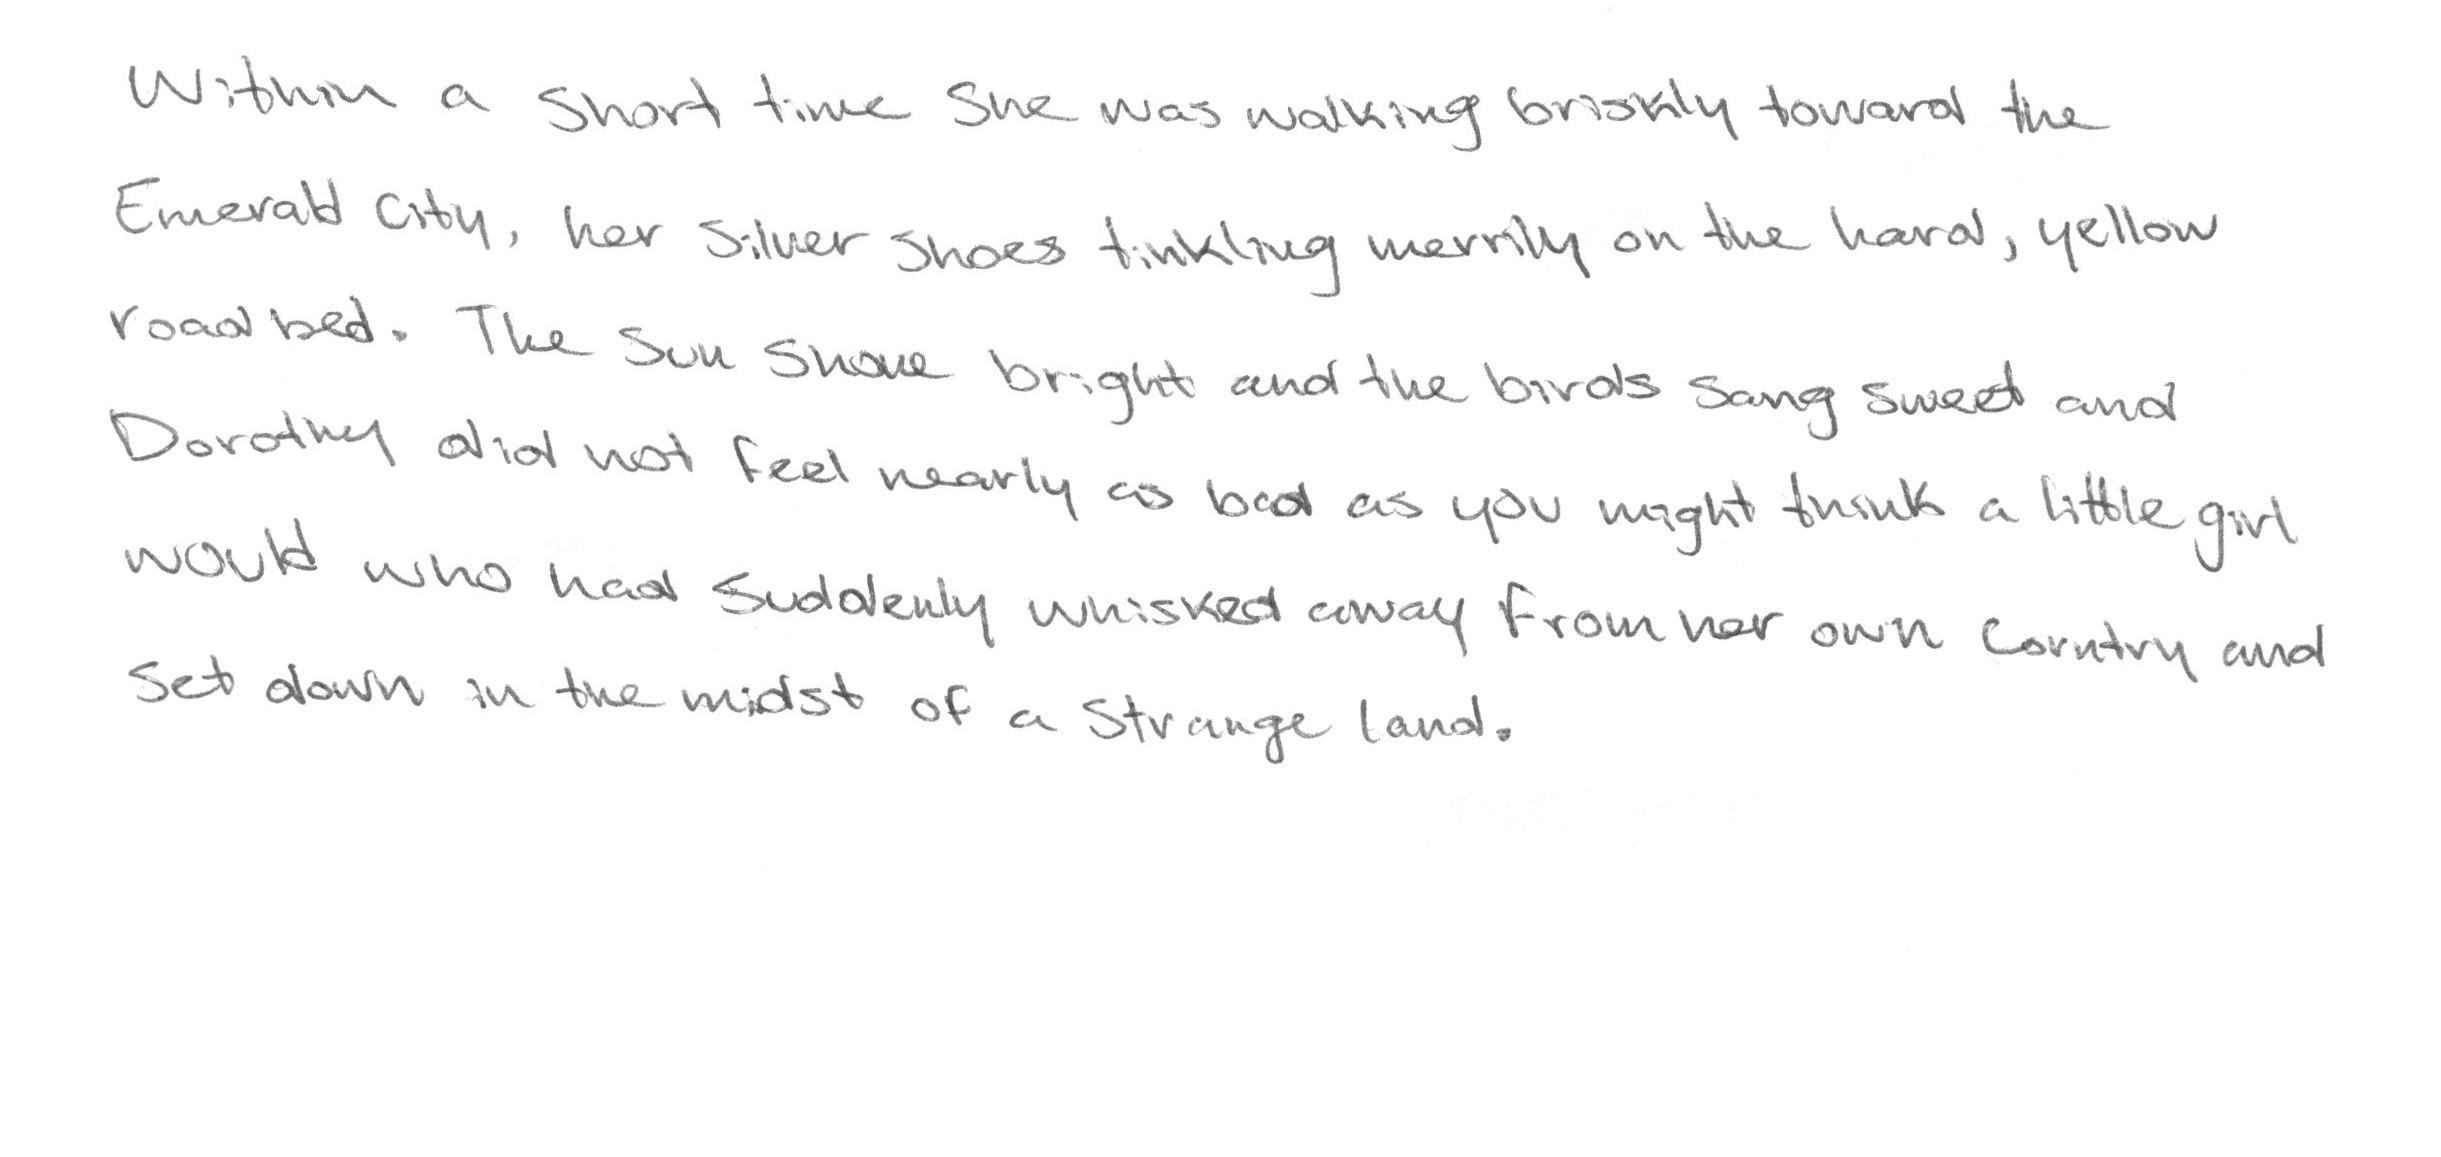 Within a short time she was walking briskly toward the
Emerald City, her silver shoes tinkling merrily on the hard, yellow
road bed. The sun shone bright and the birds sang sweet and
Dorothy did not feel nearly as bad as you might think a little girl
would who had suddenly whisked away from her own country and
set down in the midst of a strange land.